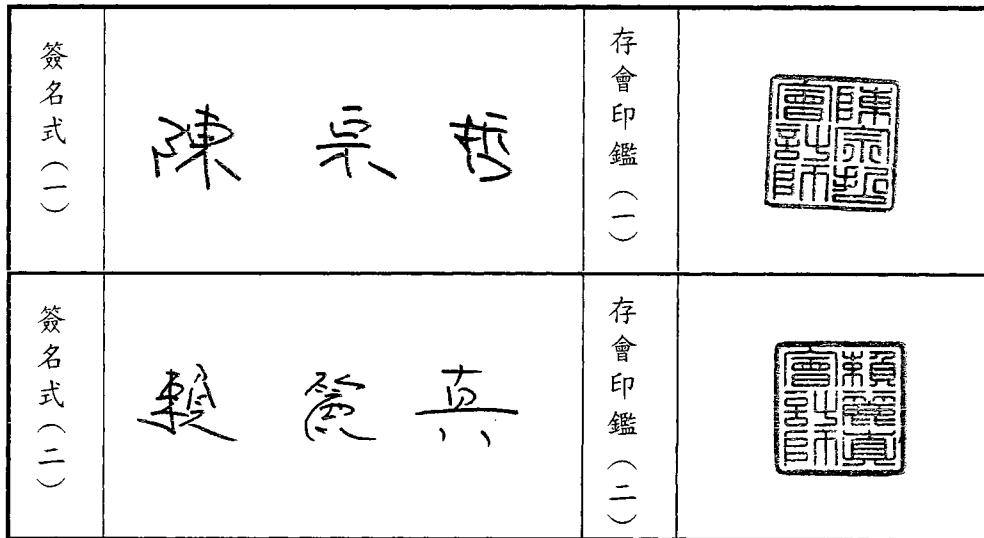 簽名式(一) 陳宗哲 存會印鑑(一) 陳宗哲會計師
簽名式(二) 賴麗真 存會印鑑(二) 賴麗真會計師